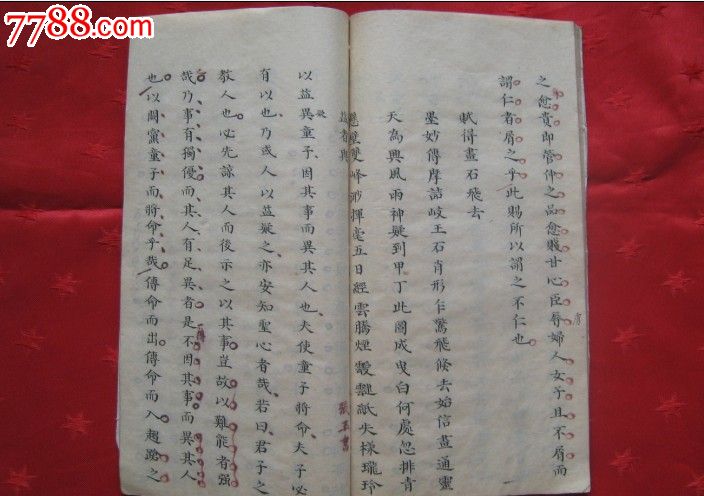 7788.com
之愈貴即管仲之品愈賤甘心臣辱婦人女子且不屑而
謂仁者屑之乎此賜所以謂之不仁也
賦得畫石飛去
墨妙傳摩詰岐王石肖形乍驚飛倏去始信畫通靈
天為興風雨神疑到甲丁此圖成叟白何處忽排青
壁雙峰渺揮毫五日經雲騰煙靉靆紙失樣瓏玲
益者與
張玉書
以益異童子因其事而異其人也夫使童子將命夫子必
有以也乃或人以益疑之亦安知聖心者哉若曰君子之
教人也必先諒其人而後示之以其事豈故以難能者强
哉乃事有獨優而其人有足異者是不因其事而異其人
也以闕黨童子而將命乎哉傳命而出傳命而入趨蹌之